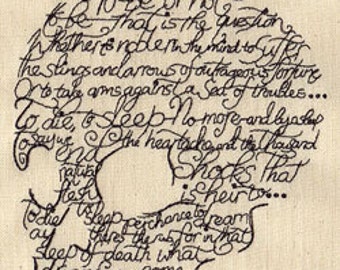 To be or not
to be that is the question
Whether tis nobler in the mind to suffer
the slings and arrows of outrageous fortune
Or to take arms against a Sea of troubles...
To die, to sleep No more-and by a sleep
to say we the heartache and the thousand
end
natural Shocks that
flesh is heir to...
to die to sleep perchance to dream
ay theres the rub for in that
sleep of death what
dreams come